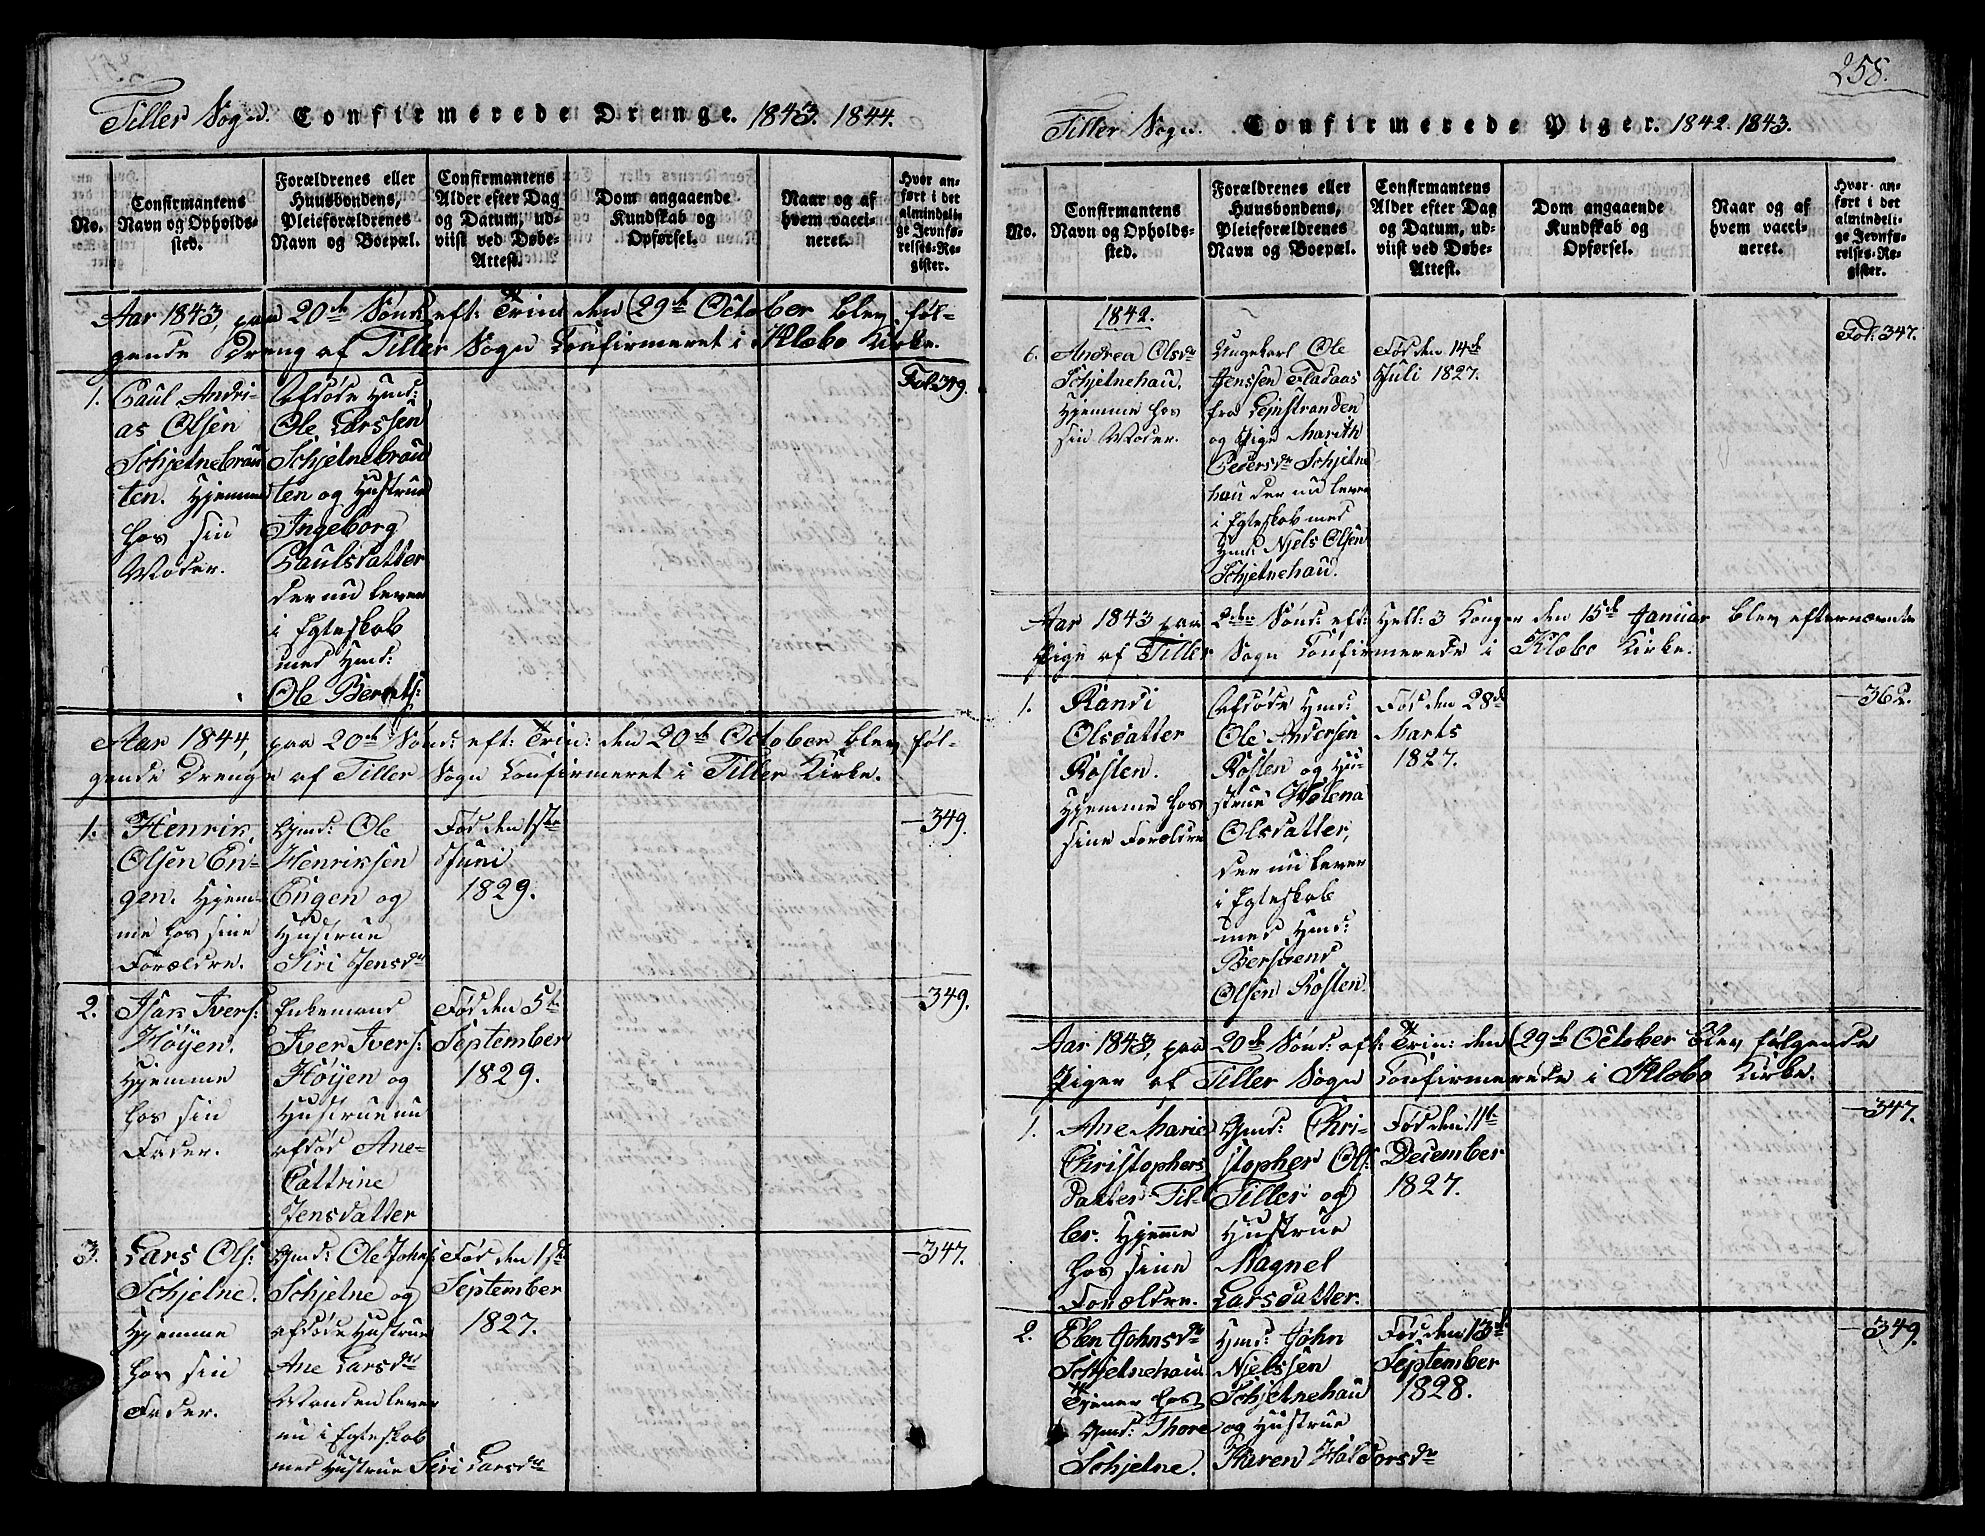 Tiller Sogn. Confirmerede Drenge. 1843. 1844.
No.
Confirmantens
Navn og Opholds-
sted.
Forældrenes eller
Huusbondens,
Pleieforældrenes
Navn og Boepæl.
Confirmantens
Alder efter Dag
og Datum, ud-
viist ved Døbe-
Attest.
Dom angaaende
Kundskab og
Opførsel.
Naar og af
hvem vacci-
neret.
Hvor an-
ført i det
almindeli-
ge Jevnfø-
relses-Re-
gister.
Aar 1843, paa 20de Sønd: eft: Trin: den 29de October blev føl-
gende Dreng af Tiller Sogn Confirmeret i Klæbo Kirke.
1.
Paul Andri-
as Olsen
Schjetnebrau
ten. Hjemme
hos sin
Moder.
Afdøde Hmd:
Ole Larssen
Schjetnebrau
ten og Hustrue
Ingeborg
Paulsdatter
der nu lever
i Egteskab
med Hmd:
Ole BerntS:
Fol: 349.
Aar 1844, paa 20de Sønd: eft: Trin: den 20de October blev føl-
gende Drenge af Tiller Sogn Confirmeret i Tiller Kirke.
1.
Henrik
Olsen En-
gen. Hjem-
me hos sine
Forældre.
Hmd: Ole
Henriksen
Engen og
Hustrue
Siri Jensdr
Fød den 1ste
Juni
1829.
—349.
2.
Isak Ivers:
Höyen.
Hjemme
hos sin
Fader.
Enkemand
Iver Ivers:
Höyen og
Hustrue nu
afdød Ane-
Cattrine
Jensdatter
Fød den 5te
September
1829.
—349.
3.
Lars Ols:
Schjetne.
Hjemme
hos sin
Fader.
Hmd: Ole Johns:
Schjetne og
afdøde Hustrue
Ane Larsdr
Manden lever
nu i Egteskab
med Hustrue Siri Larsdr
Fød den 1ste
September
1827.
—347.
258.
Tiller Sogn. Confirmerede Piger. 1842. 1843.
No.
Confirmantens
Navn og Opholds-
sted.
Forældrenes eller
Huusbondens,
Pleieforældrenes
Navn og Boepæl.
Confirmantens
Alder efter Dag
og Datum, ud-
viist ved Døbe-
Attest.
Dom angaaende
Kundskab og
Opførsel.
Naar og af
hvem vacci-
neret.
Hvor an-
ført i det
almindeli-
ge Jevnfø-
relses-Re-
gister.
1842.
6.
Andrea Olsdr
Schjetnehau.
Hjemme hos
sin Moder.
Ungekarl Ole
Jenssen Fladaas
fra Leinstranden
og Pige Marith
Pedersdr Schjetne
hau der nu lever
i Egteskab med
Hmd: Njels Olsen
Schjetnehau.
Fød den 14de
Juli 1827.
Fol: 347.
Aar 1843 paa 2den Sønd: eft: Hell: 3 Konger den 15de Januar blev efternævnte
Pige af Tiller Sogn Confirmerede i Klæbo Kirke.
1.
Randi
Olsdatter
Rosten.
Hjemme hos
sine Forældre
Afdøde Hmd:
Ole Andersen
Rosten og Hu-
strue Helena
Olsdatter,
der nu lever
i Egteskab
med Hmd:
Bersvend
Olsen Rosten.
Fød den 28de
Marts
1827.
—362.
Aar 1843, paa 20de Sønd: eft: Trin: den 29de October blev følgende
Piger af Tiller Sogn Confirmerede i Klæbo Kirke.
1.
Ane Marie
Christophers
datter Til-
ler. Hjemme
hos sine
Forældre.
Hmd: Chri-
stopher Ols:
Tiller og
Hustrue
Magnel
Larsdatter.
Fød den 11te
December
1827.
—347.
2.
Elen Johnsdr
Schjetnehau
Tjener hos
Hmd: Thore
Schjetne.
Hmd: John
Njelssen
Schjetnehau
og Hustrue
Karen Haldorsdr
Fød den 13de
September
1828.
—349.